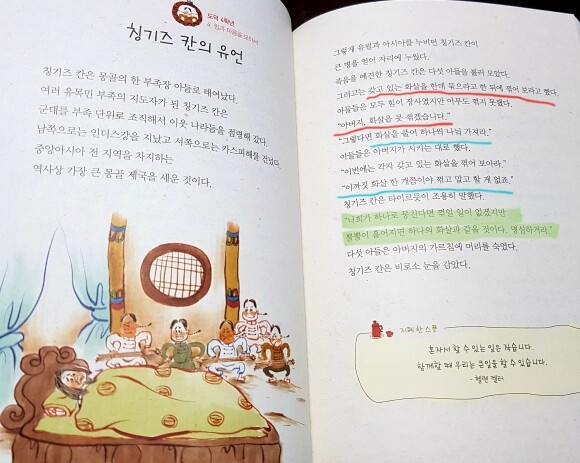 도덕 4학년
4. 힘과 마음을 모아서
칭기즈 칸의 유언
칭기즈 칸은 몽골의 한 부족장 아들로 태어났다.
여러 유목민 부족의 지도자가 된 칭기즈 칸은
군대를 부족 단위로 조직해서 이웃 나라들을 점령해 갔다.
남쪽으로는 인더스강을 지났고 서쪽으로는 카스피해를 건넜다.
중앙아시아 전 지역을 차지하는
역사상 가장 큰 몽골 제국을 세운 것이다.
그렇게 유럽과 아시아를 누비던 칭기즈 칸이
큰 병을 얻어 자리에 누웠다.
죽음을 예감한 칭기즈 칸은 다섯 아들을 불러 모았다.
그러고는 갖고 있는 화살을 한데 묶으라고 한 뒤에 꺾어 보라고 했다.
아들들은 모두 힘이 장사였지만 아무도 꺾지 못했다.
“아버지, 화살을 못 꺾겠습니다.”
“그렇다면 화살을 풀어 하나씩 나눠 가져라.”
아들들은 아버지가 시키는 대로 했다.
“이번에는 각자 갖고 있는 화살을 꺾어 보아라.”
“이까짓 화살 한 개쯤이야 꺾고 말고 할 게 없죠.”
칭기즈 칸은 타이르듯이 조용히 말했다.
“너희가 하나로 뭉친다면 꺾일 일이 없겠지만
뿔뿔이 흩어지면 하나의 화살과 같을 것이다. 명심하거라.”
다섯 아들은 아버지의 가르침에 머리를 숙였다.
칭기즈 칸은 비로소 눈을 감았다.
지혜 한 스푼
혼자서 할 수 있는 일은 작습니다.
함께할 때 우리는 큰일을 할 수 있습니다.
- 헬렌 켈러